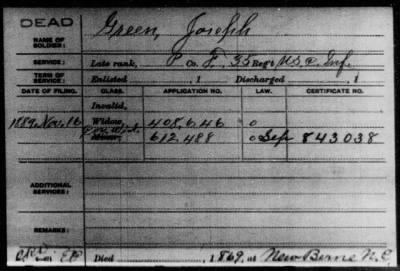 DEAD
NAME OF SOLDIER: Green, Joseph
SERVICE: Late rank, P Co. F, 35 Reg't U.S.C. Inf.
TERM OF SERVICE: Enlisted , 1 Discharged , 1
DATE OF FILING. CLASS. APPLICATION NO. LAW. CERTIFICATE NO.
Invalid,
1889, Nov. 16 Widow, 408,646 o
Minor, 612,488 o 843,038
ADDITIONAL SERVICES:
REMARKS:
Died , 1869, at New Berne N.C.